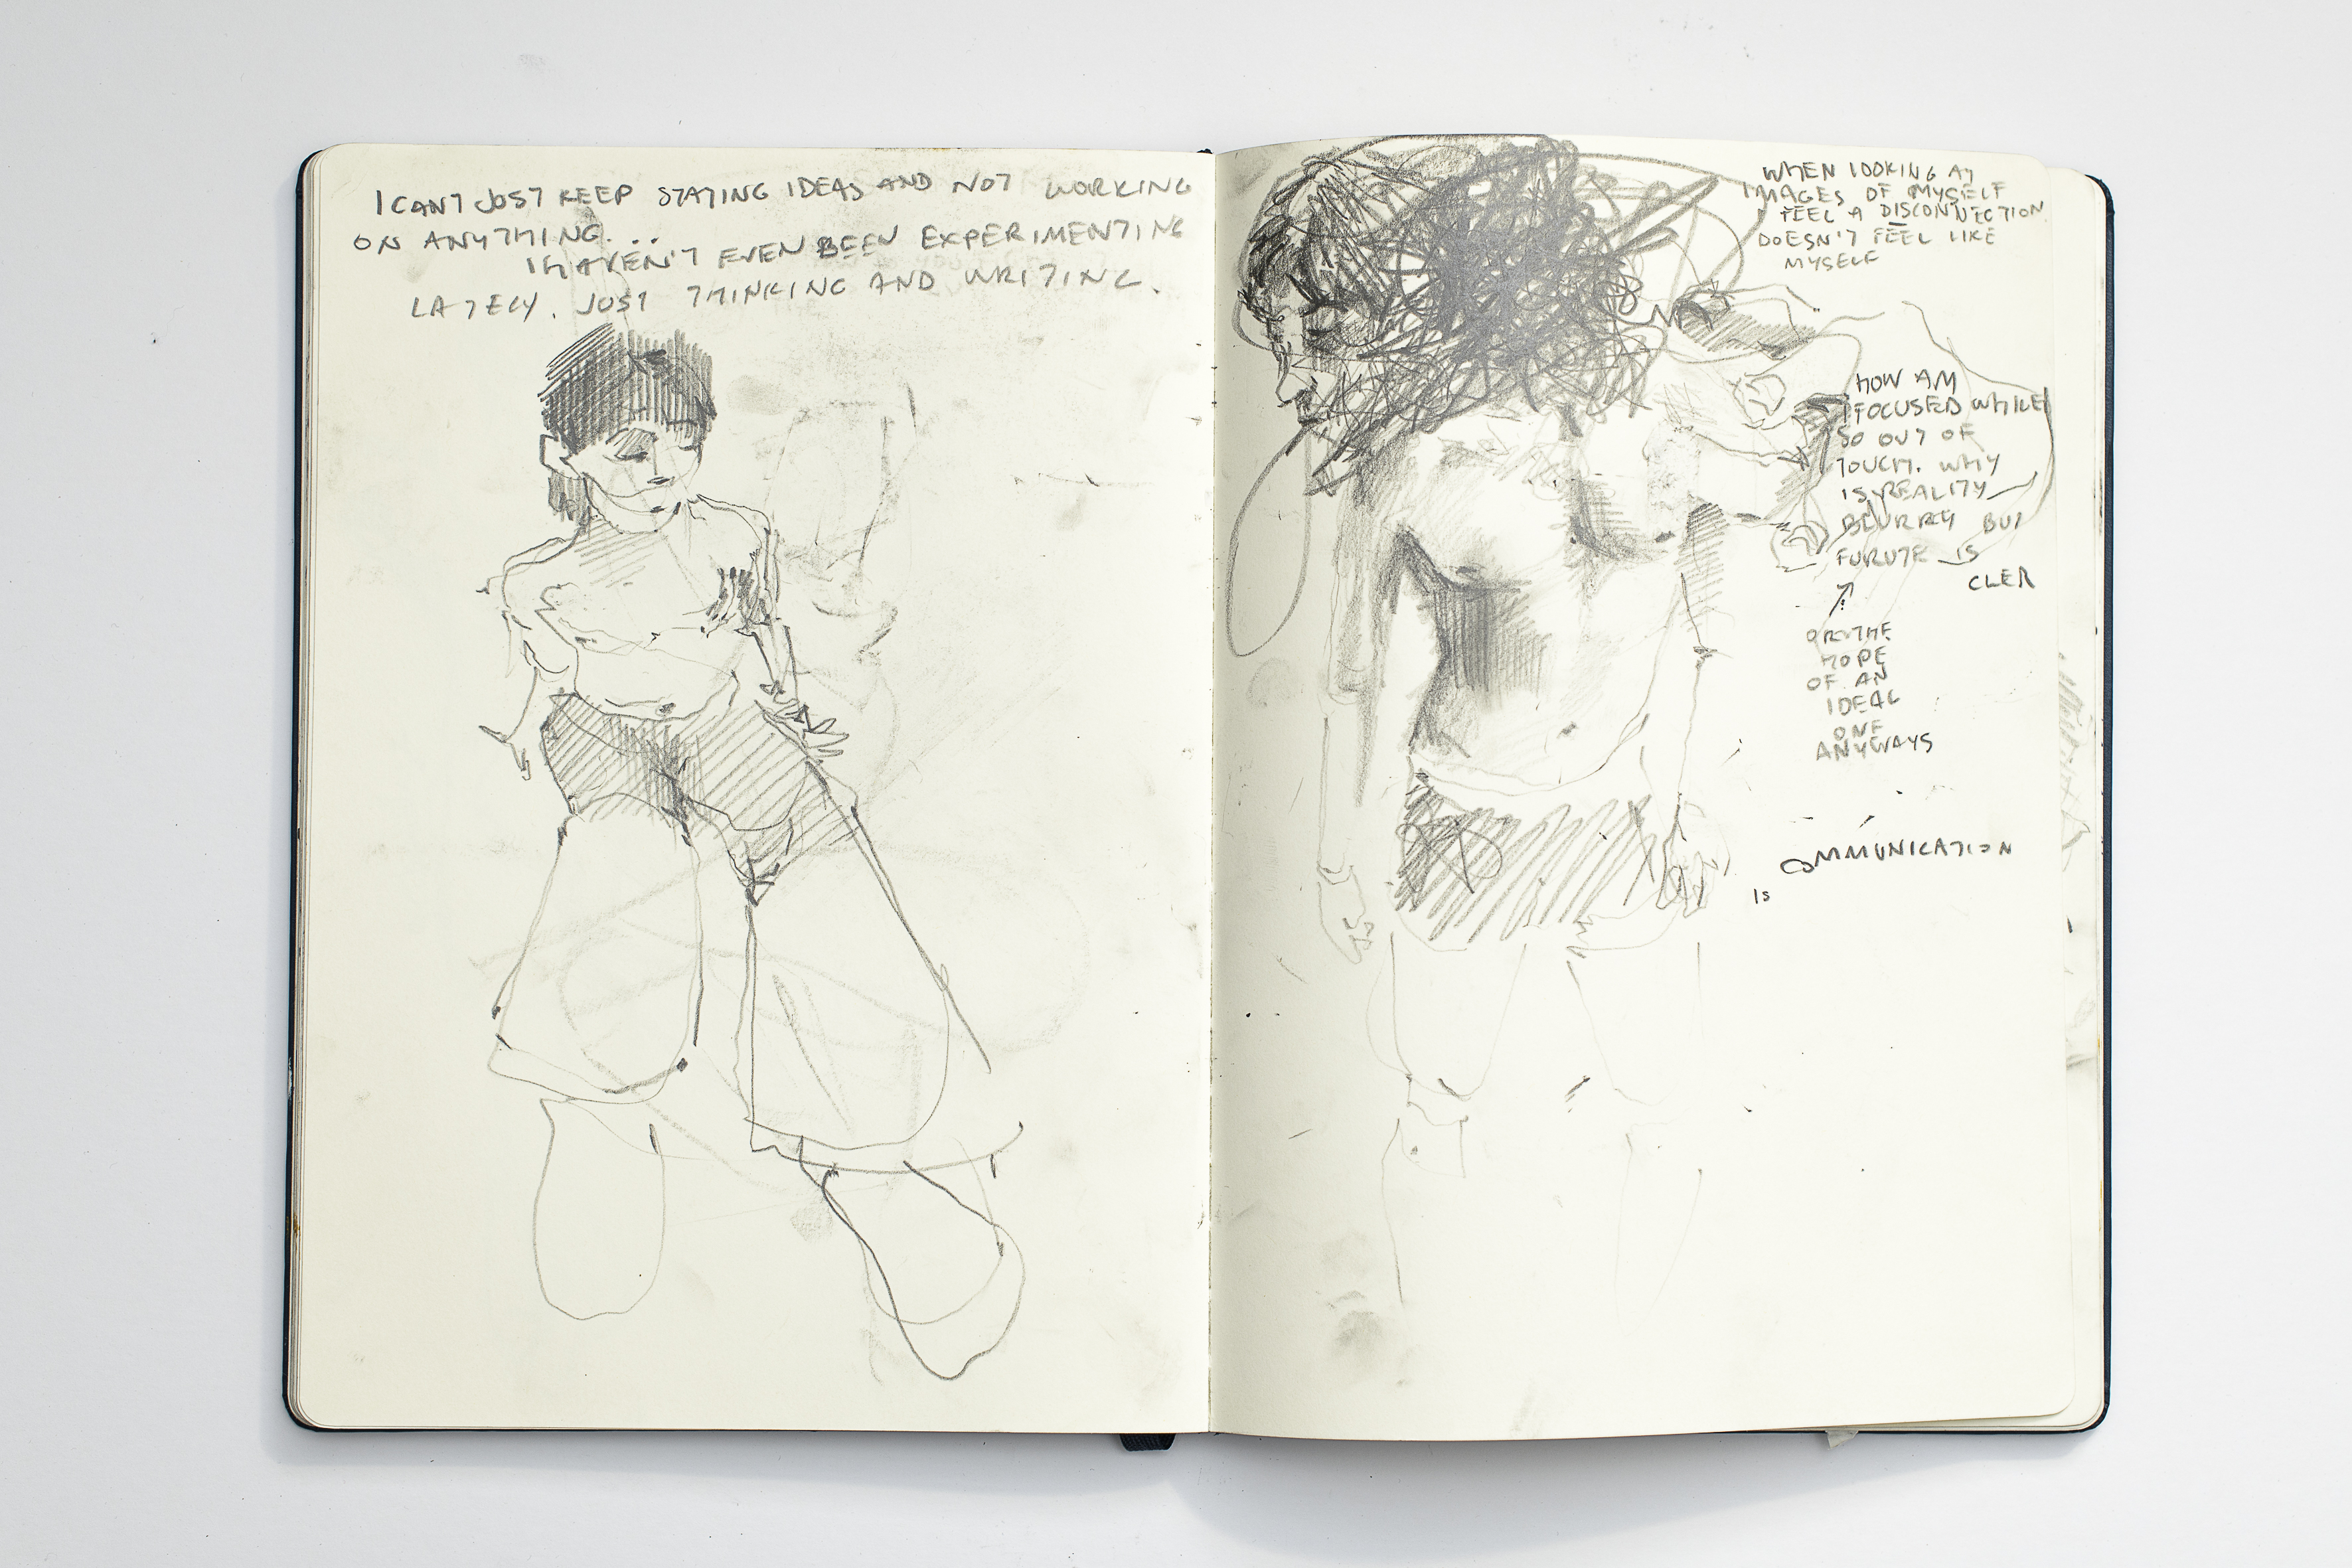 I CANT JUST KEEP STATING IDEAS AND NOT WORKING
ON ANYTHING...
I HAVEN'T EVEN BEEN EXPERIMENTING
LATELY. JUST THINKING AND WRITING.
WHEN LOOKING AT
IMAGES OF MYSELF
I FEEL A DISCONNECTION
DOESN'T FEEL LIKE
MYSELF
HOW AM
I FOCUSED WHILE
SO OUT OF
TOUCH. WHY
IS REALITY
BLURRY BUT
FURUTE IS
CLER
OR THE
HOPE
OF AN
IDEAL
ONE
ANYWAYS
COMMUNICATION
IS